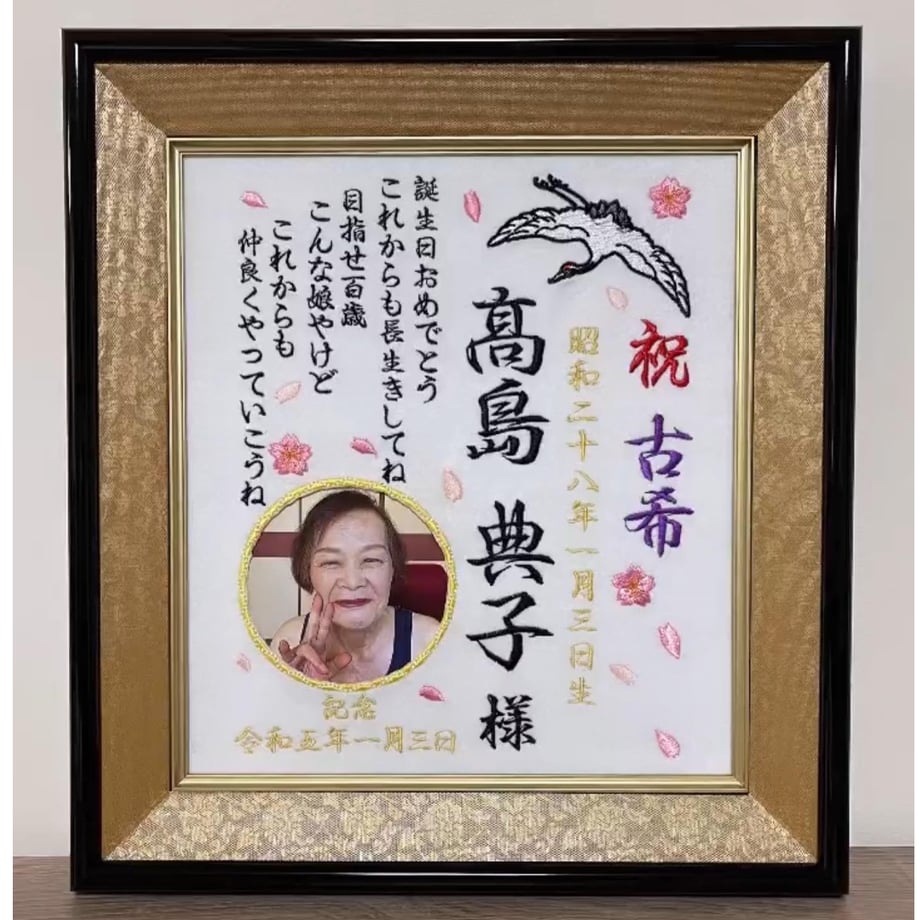 祝 古希
昭和二十八年一月三日生
髙島 典子 様
誕生日おめでとう
これからも長生きしてね
目指せ百歳
こんな娘やけど
これからも
仲良くやっていこうね
記念
令和五年一月三日